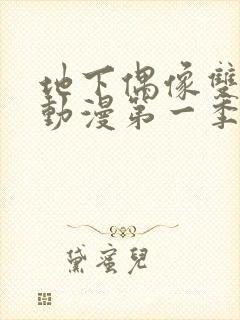 地下偶像雙
動漫第一季
黛蜜兒